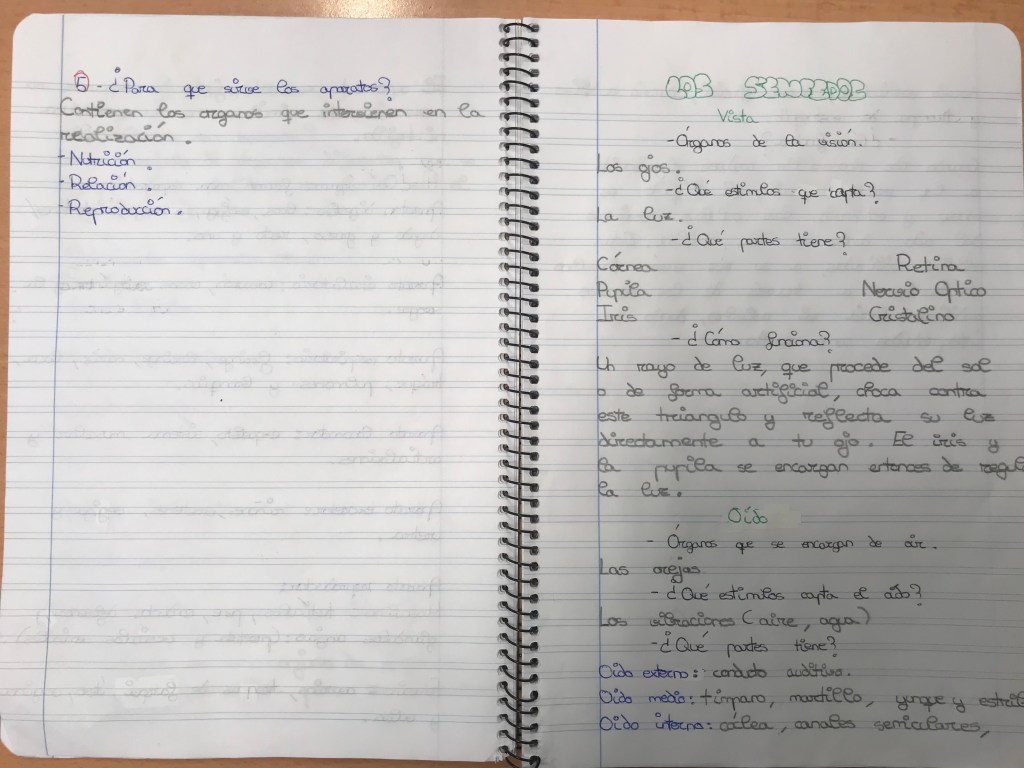 5 - ¿Para que sirve los aparatos?
Contienen los organos que intervienen en la
realización.
- Nutrición.
- Relación.
- Reproducción.
LOS SENTIDOS
Vista
- Órganos de la visión.
Los ojos.
- ¿Qué estimlos que capta?
La luz.
- ¿Qué partes tiene?
Córnea Retina
Pupila Nervio Optico
Iris Cristalino
- ¿Cómo funciona?
Un rayo de luz, que procede del sol
o de forma artificial, choca contra
este triangulo y reflecta su luz
directamente a tu ojo. El iris y
la pupila se encargan entonces de regul
la luz.
Oído
- Órganos que se encargan de oír.
Las orejas
- ¿Qué estimlos capta el oído?
Los vibraciones (aire, agua)
- ¿Qué partes tiene?
Oido externo: conducto auditivo.
Oido medio: tímpano, martillo, yunque y estrib
Oido interno: cóclea, canales semiculares,